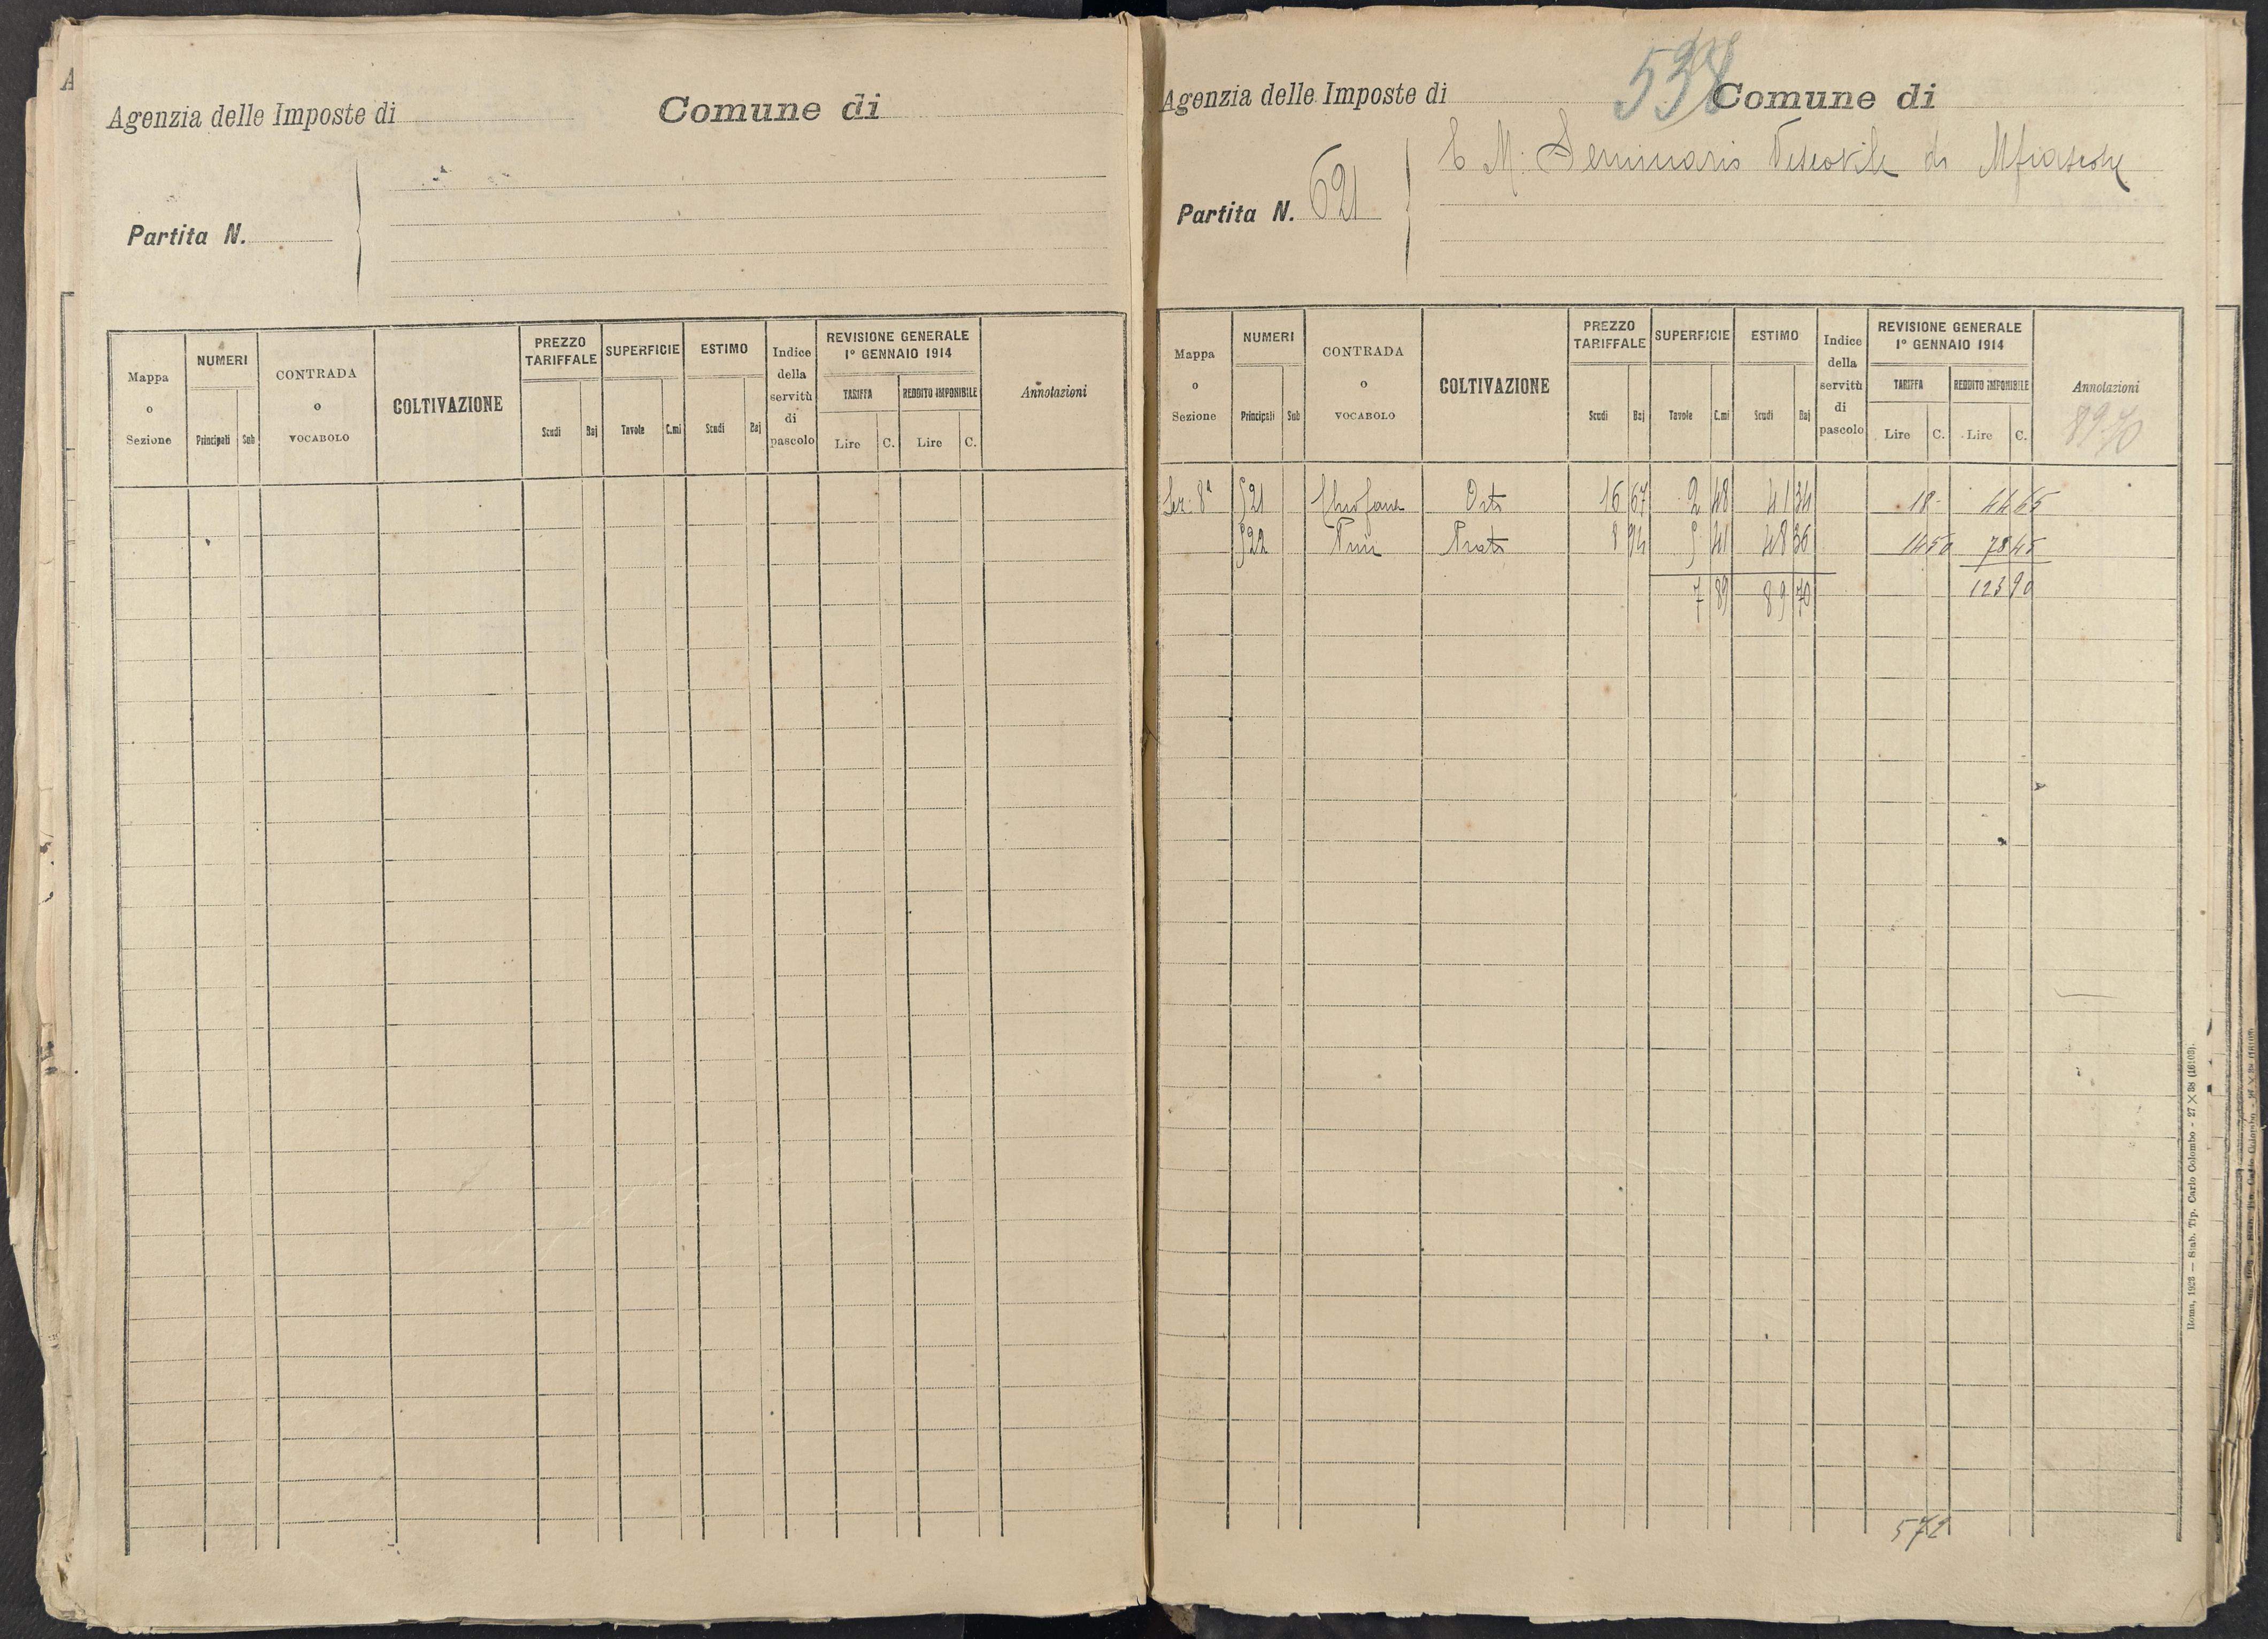 Agenzia delle Imposte di Comune di
Partita N.
Mappa o Sezione NUMERI Principali Sub CONTRADA o VOCABOLO COLTIVAZIONE PREZZO TARIFFALE Scudi Baj SUPERFICIE Tavole C.mi ESTIMO Scudi Baj Indice della servitù di pascolo REVISIONE GENERALE 1° GENNAIO 1914 TARIFFA Lire C. REDDITO IMPONIBILE Lire C. Annotazioni
538
Agenzia delle Imposte di Comune di
Seminario Vescovile di Mfiascone
Partita N. 621
Mappa o Sezione NUMERI Principali Sub CONTRADA o VOCABOLO COLTIVAZIONE PREZZO TARIFFALE Scudi Baj SUPERFICIE Tavole C.mi ESTIMO Scudi Baj Indice della servitù di pascolo REVISIONE GENERALE 1° GENNAIO 1914 TARIFFA Lire C. REDDITO IMPONIBILE Lire C. Annotazioni
89.70
Sez. 8ª 521 Orto 16 67 2 48 41 34 18 - 44 65
522 Prato 8 94 5 41 48 36 14 50 78 45
7 89 89 70 123 90
572
Roma, 1923 — Stab. Tip. Carlo Colombo - 27 × 38 (16103).